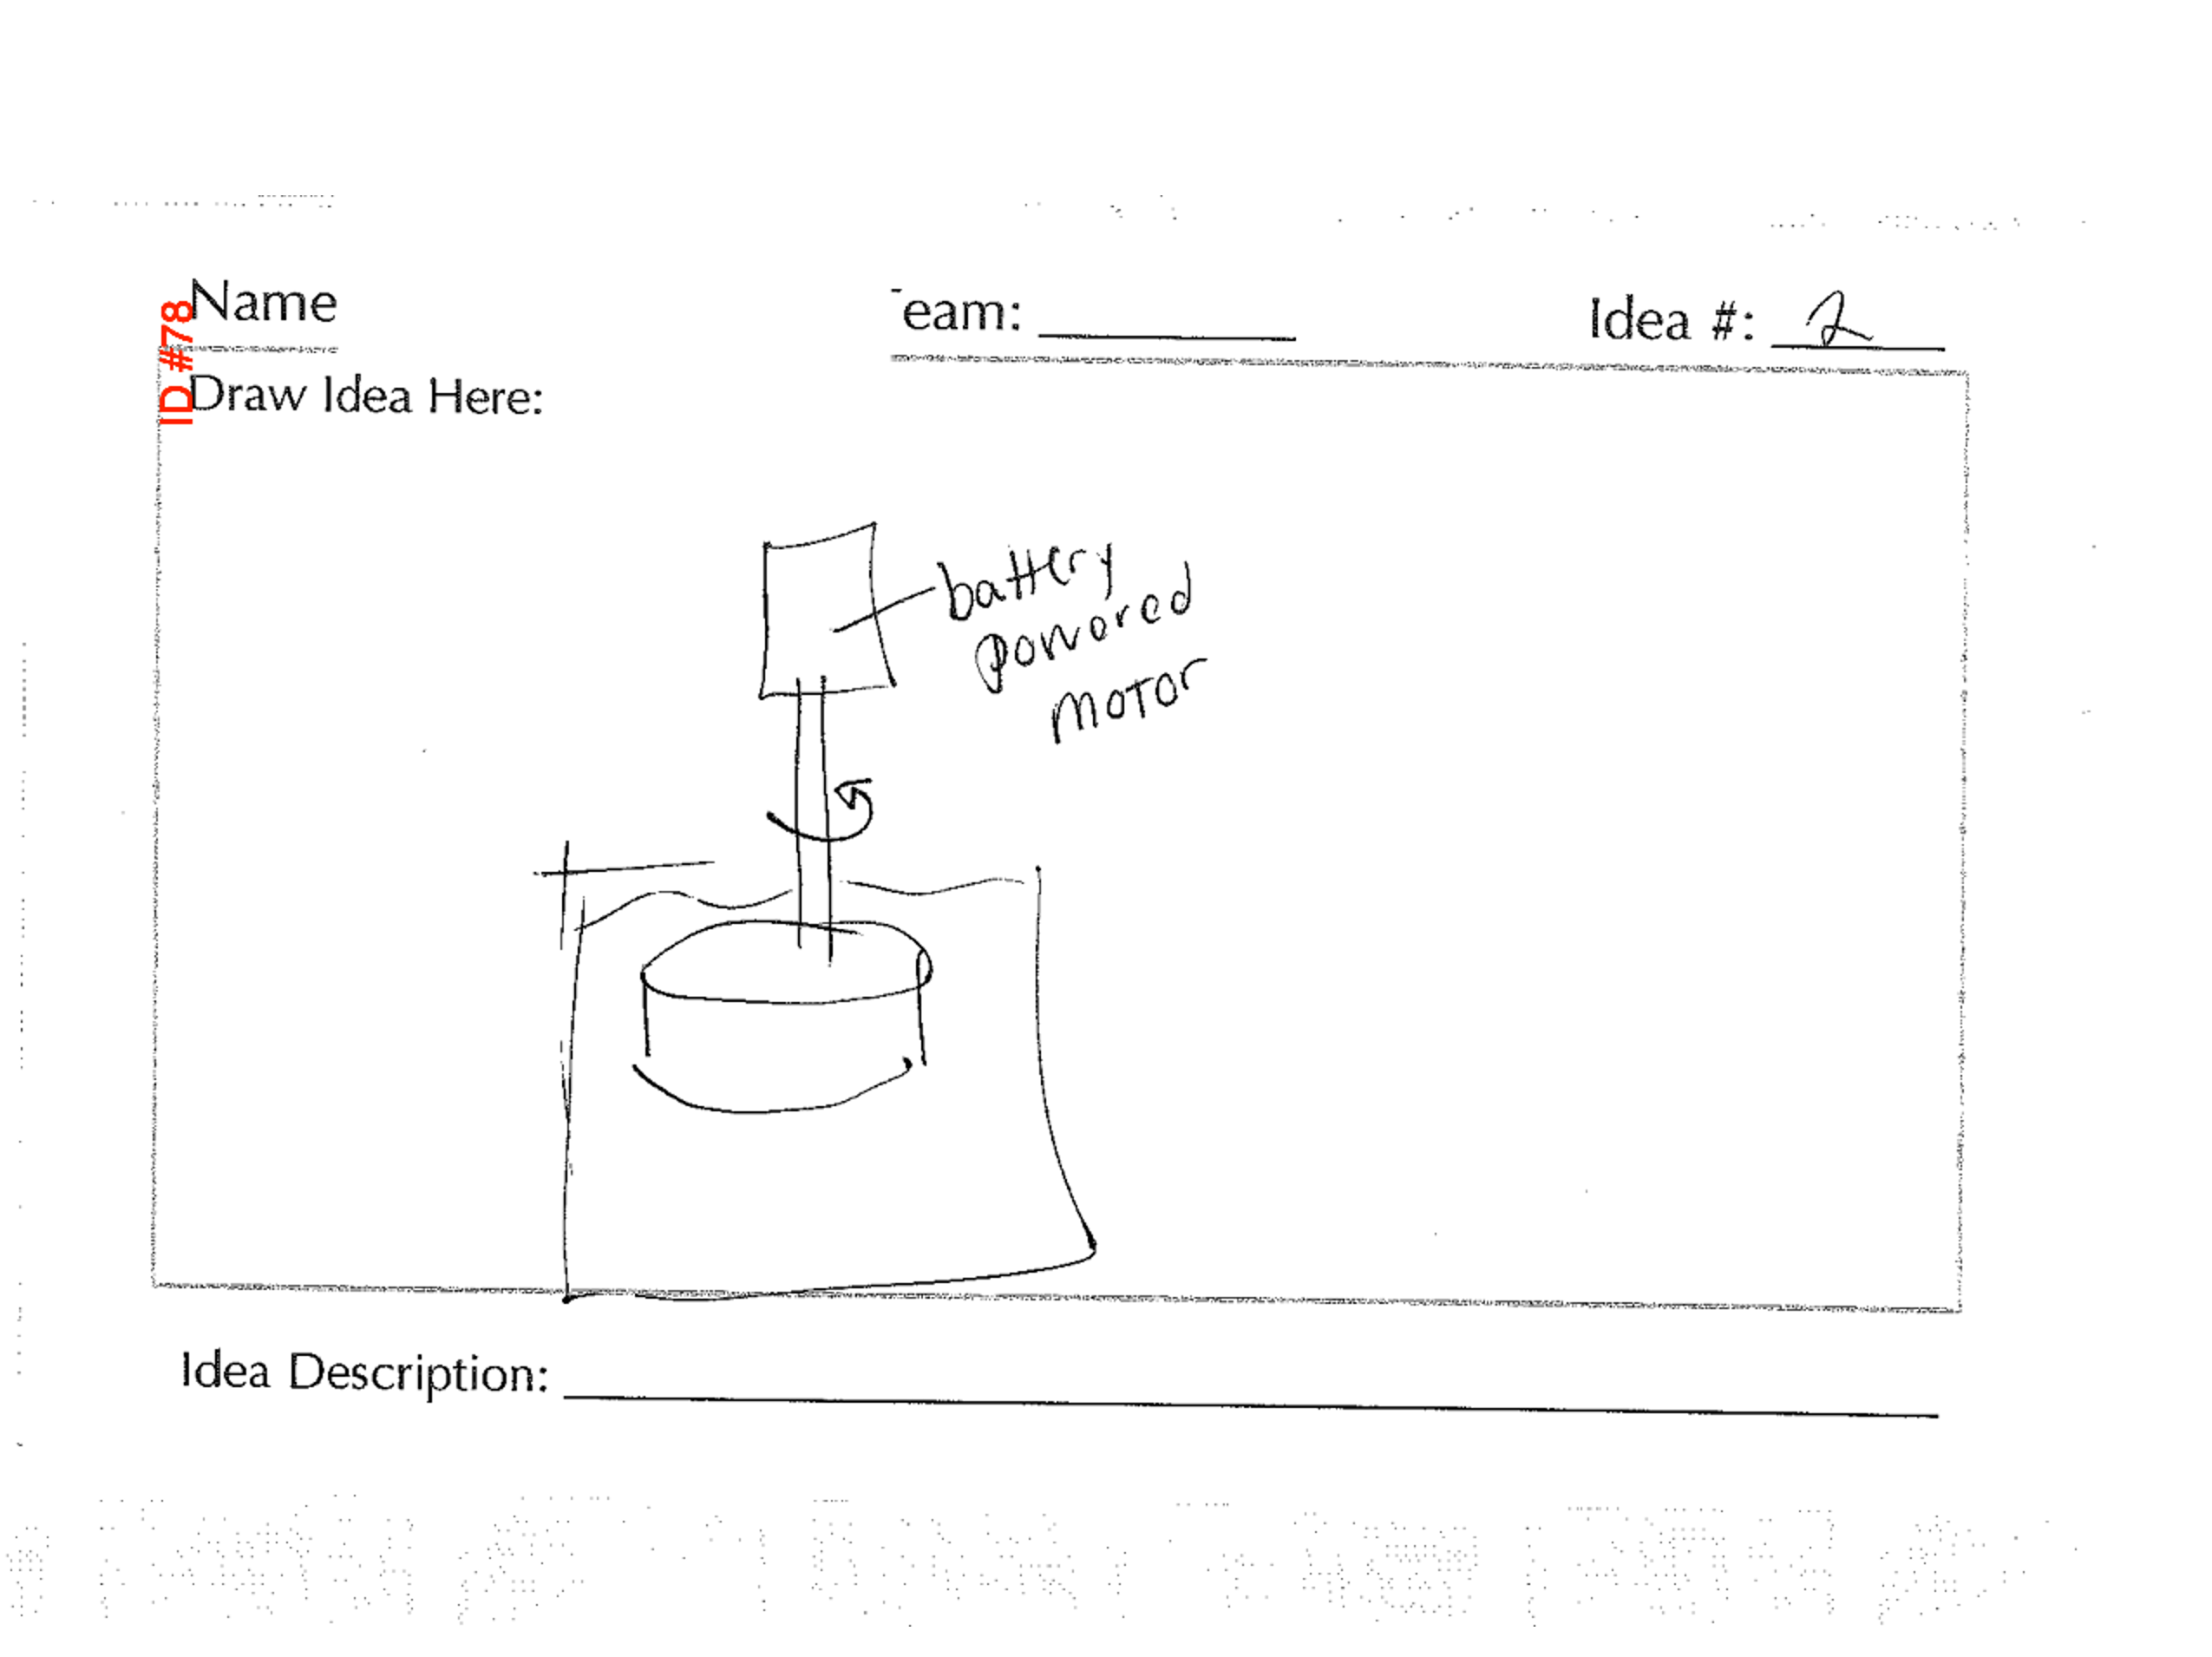 Name
eam:
Idea #: 2
ID #78
Draw Idea Here:
battery
powered
motor
Idea Description: